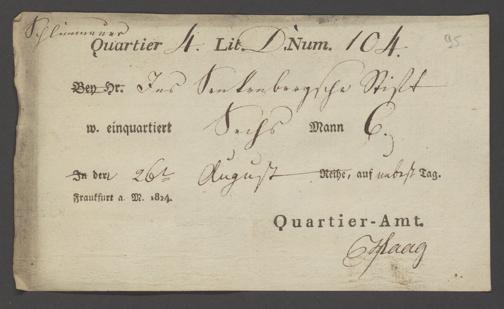 Quartier 4. Lit. D. Num. 104.
95
Bey Hr. Ins Senkenbergsche Stift
w. einquartiert Sechs Mann 6.
In der 26t August Reihe, auf unbest Tag.
Frankfurt a. M. 1814.
Quartier-Amt.
Haag